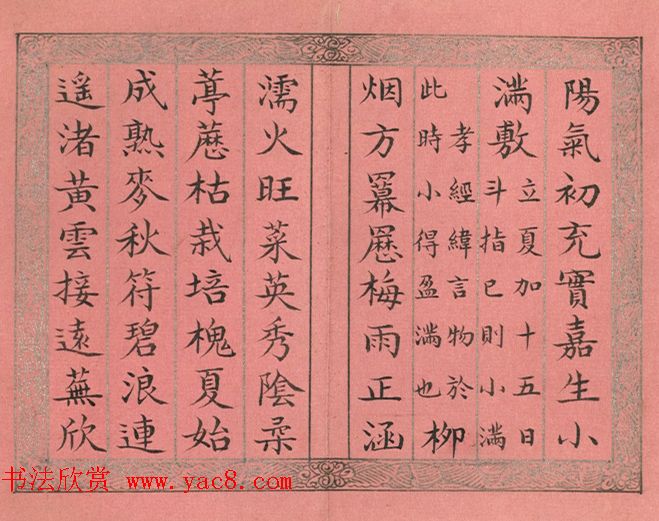 陽氣初充實嘉生小
滿敷
立夏加十五日
斗指巳則小滿
孝經緯言物於
此時小得盈滿也
柳
烟方羃䍥梅雨正涵
濡火旺菜英秀陰柔
葶藶枯栽培槐夏始
成熟麥秋符碧浪連
遥渚黄雲接遠蕪欣
书法欣赏 www.yac8.com